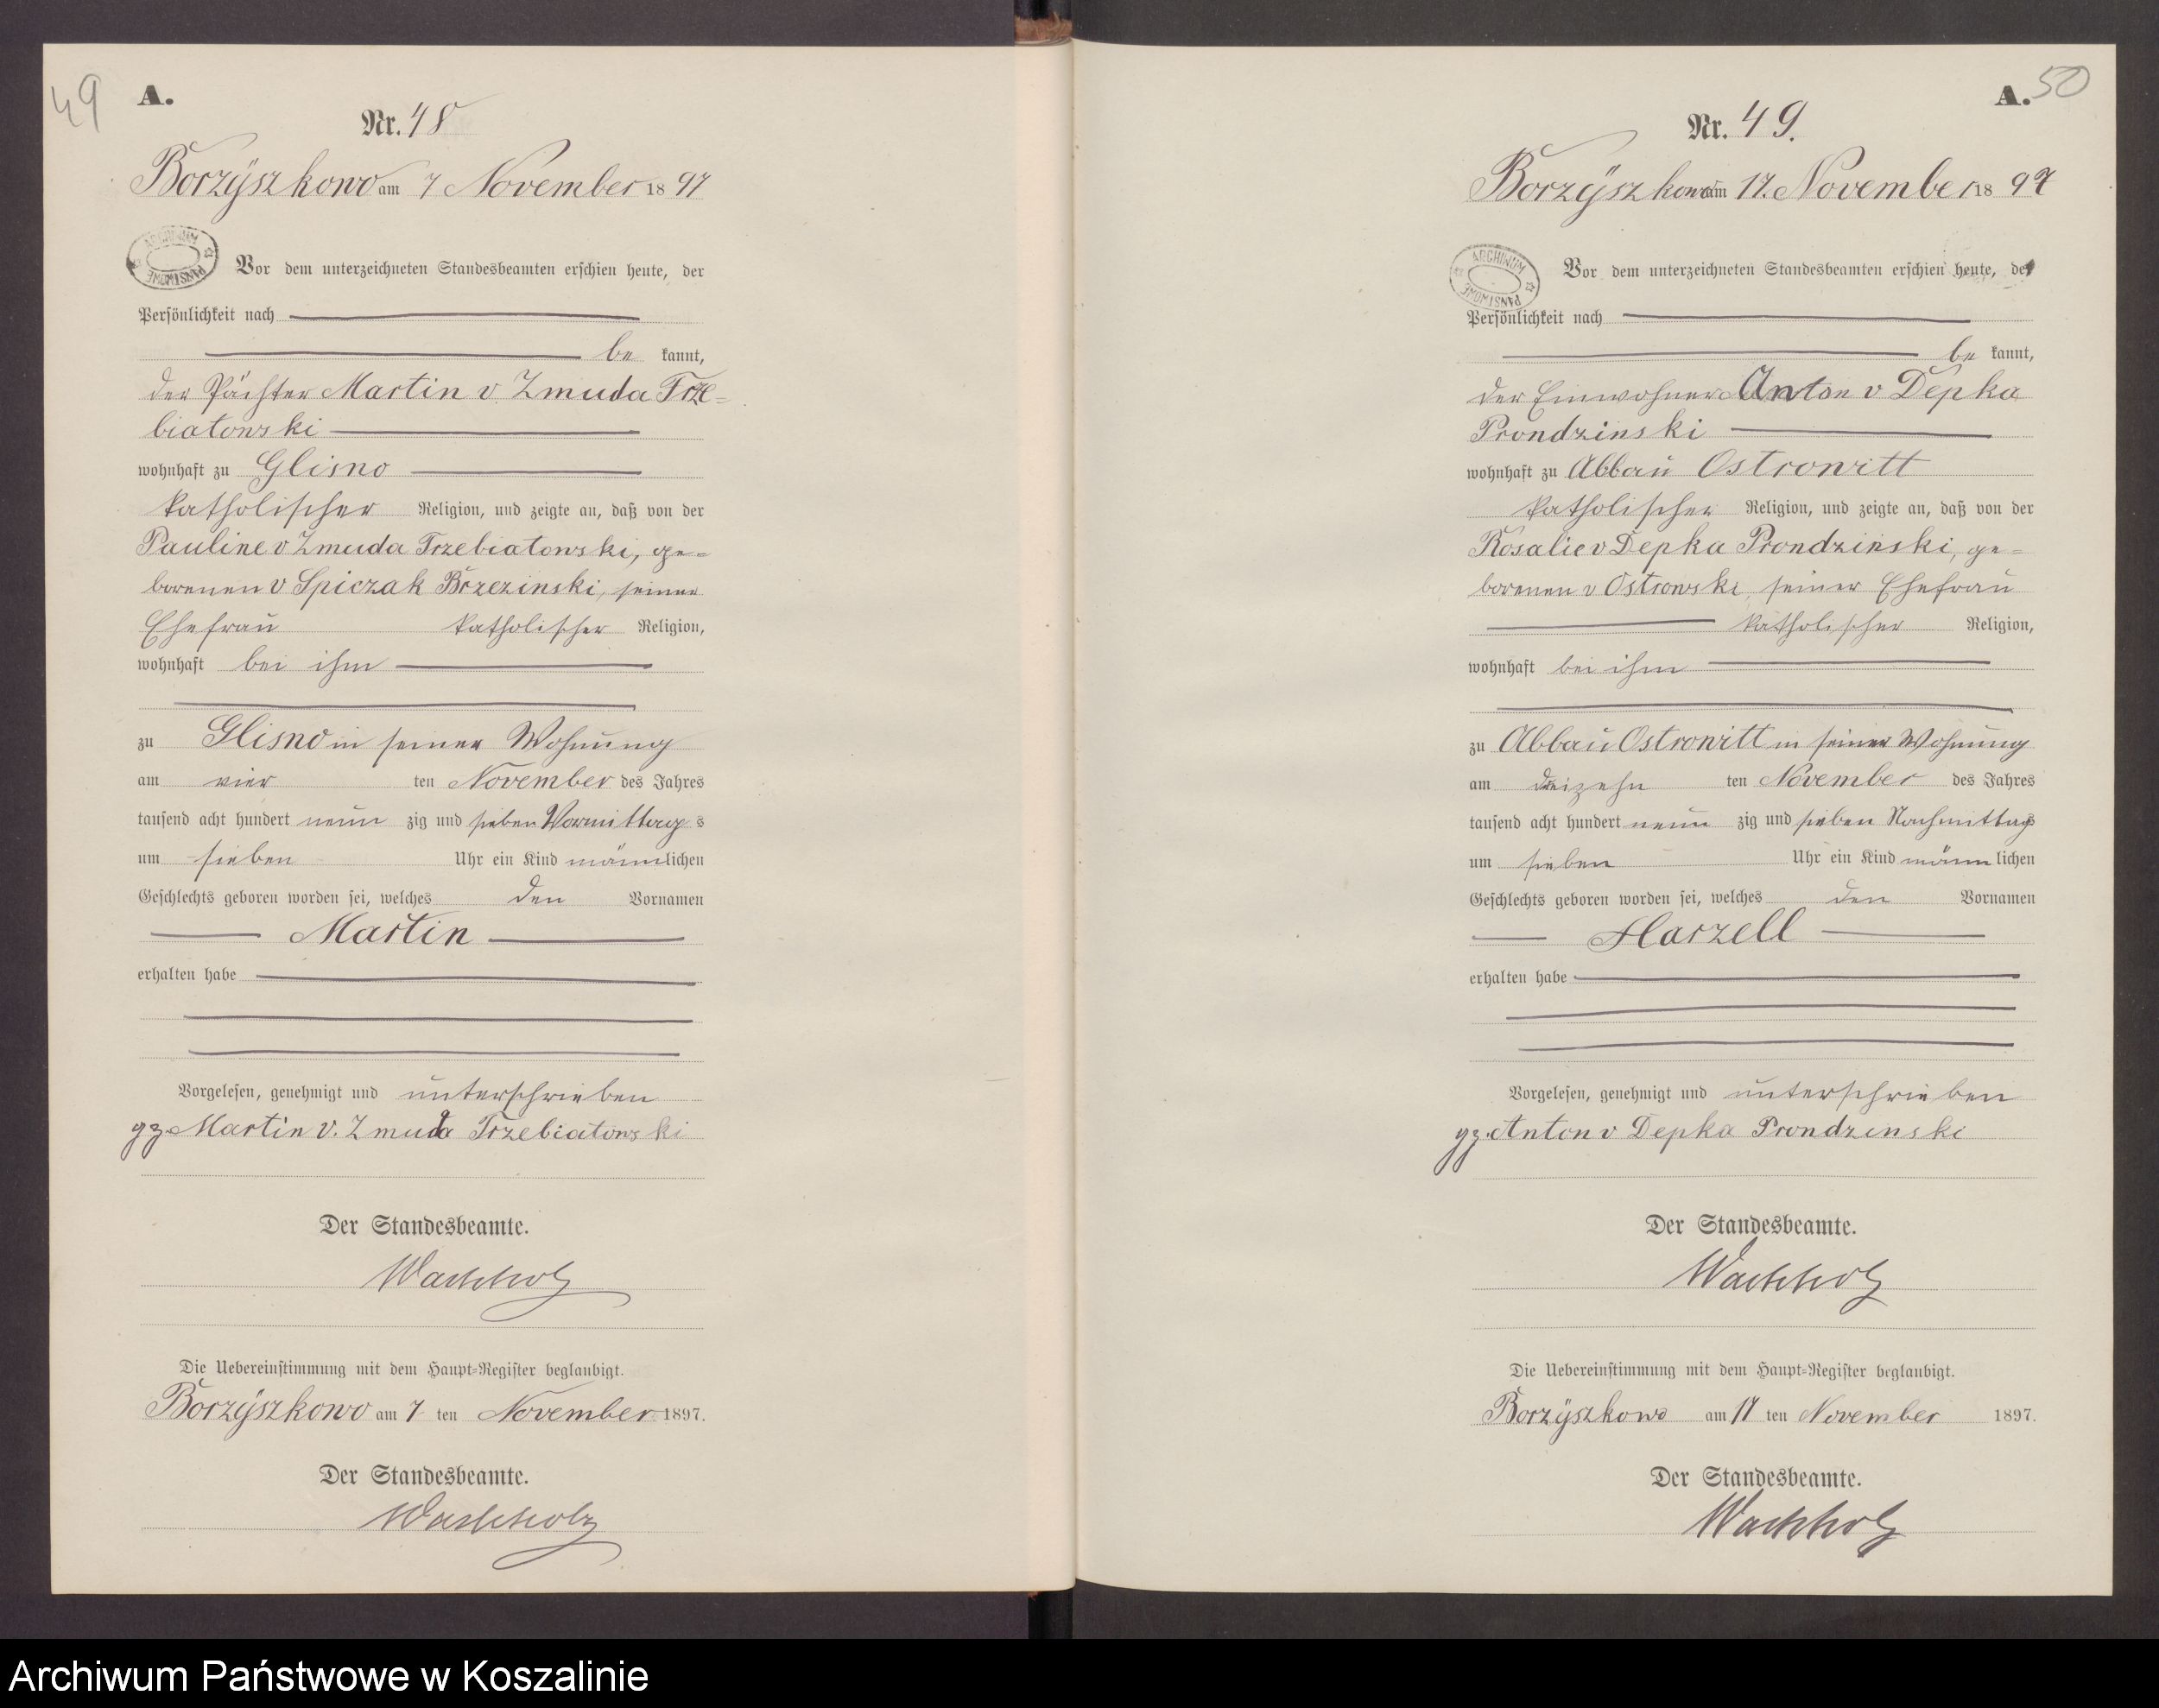 49
A.
Nr. 48
Borzÿszkowo am 7 November 1897
ARCHIWUM PAŃSTWOWE
Vor dem unterzeichneten Standesbeamten erschien heute, der
Persönlichkeit nach
be kannt,
der Pächter Martin v Zmuda Trze=
biatowski
wohnhaft zu Glisno
katholischer Religion, und zeigte an, daß von der
Pauline v Zmuda Trzebiatowski, ge=
borenen v Spiczak Brzezinski, seiner
Ehefrau katholischer Religion,
wohnhaft bei ihm
zu Glisno in seiner Wohnung
am vier ten November des Jahres
tausend acht hundert neun zig und sieben Vormittags
um sieben Uhr ein Kind männlichen
Geschlechts geboren worden sei, welches den Vornamen
Martin
erhalten habe
Vorgelesen, genehmigt und unterschrieben
gz. Martin v. Zmuda Trzebiatowski
Der Standesbeamte.
Wachholz
Die Uebereinstimmung mit dem Haupt-Register beglaubigt.
Borzÿszkowo am 7 ten November 1897.
Der Standesbeamte.
Wachholz
A. 50
Nr. 49.
Borzÿszkowo am 17. November 1897
ARCHIWUM PAŃSTWOWE
Vor dem unterzeichneten Standesbeamten erschien heute, der
Persönlichkeit nach
be kannt,
der Einwohner Anton v Depka
Prondzinski
wohnhaft zu Abbau Ostrowitt
katholischer Religion, und zeigte an, daß von der
Rosalie v Depka Prondzinski, ge=
borenen v Ostrowski, seiner Ehefrau
katholischer Religion,
wohnhaft bei ihm
zu Abbau Ostrowitt in seiner Wohnung
am dreizehn ten November des Jahres
tausend acht hundert neun zig und sieben Nachmittags
um sieben Uhr ein Kind männlichen
Geschlechts geboren worden sei, welches den Vornamen
Marzell
erhalten habe
Vorgelesen, genehmigt und unterschrieben
gz. Anton v Depka Prondzinski
Der Standesbeamte.
Wachholz
Die Uebereinstimmung mit dem Haupt-Register beglaubigt.
Borzÿszkowo am 17 ten November 1897.
Der Standesbeamte.
Wachholz
Archiwum Państwowe w Koszalinie